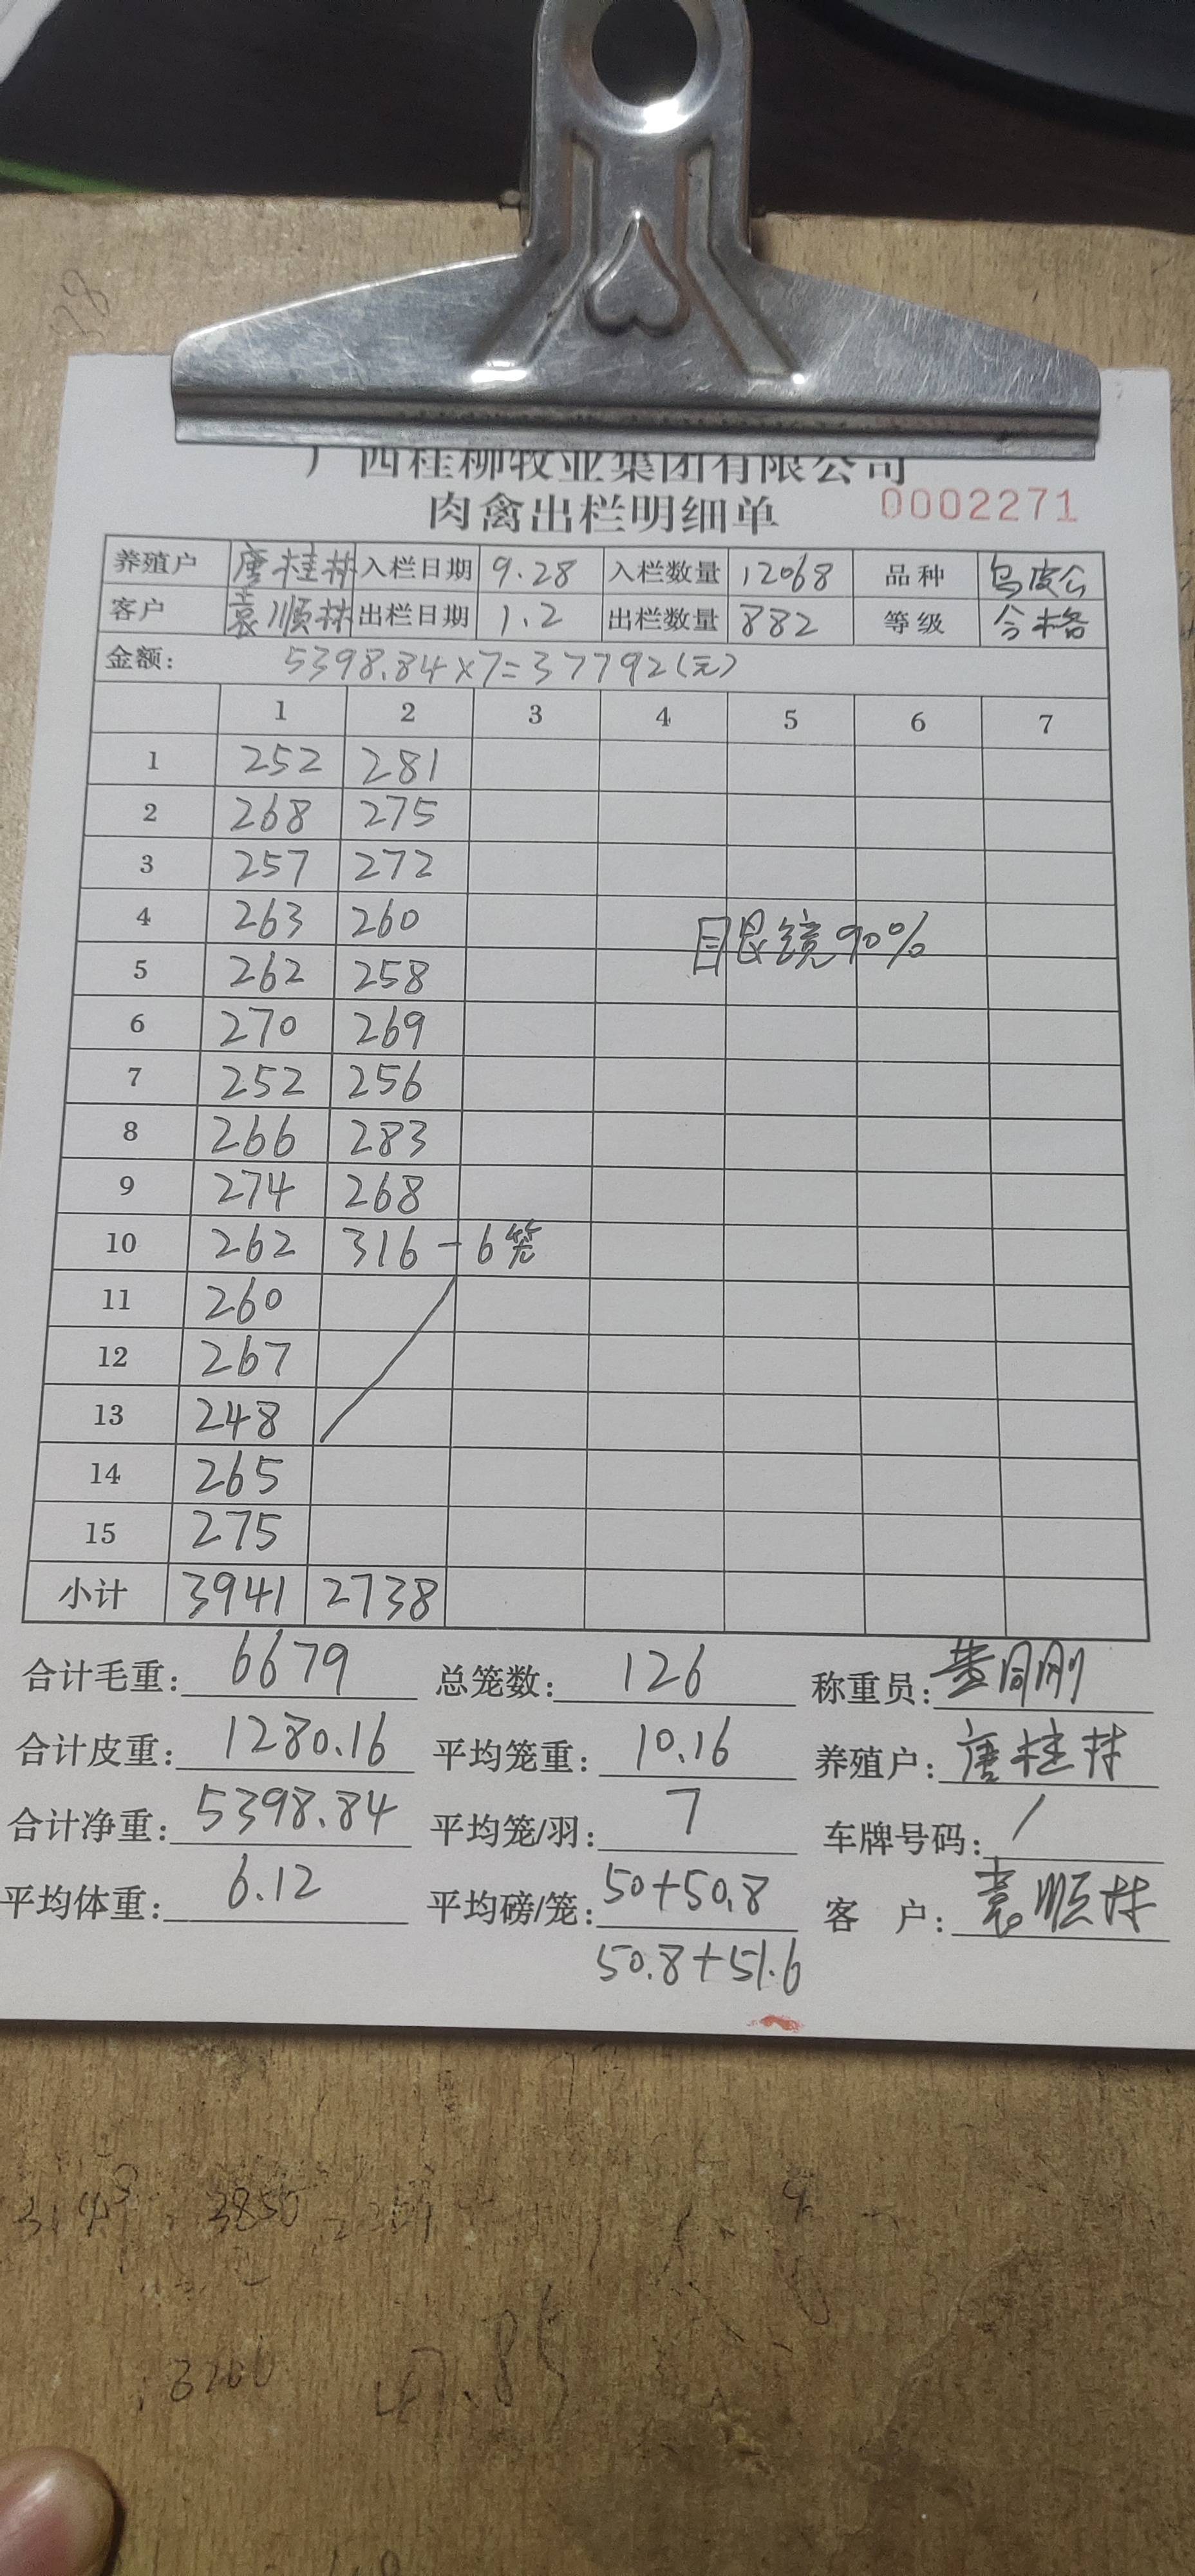 广西桂柳牧业集团有限公司
肉禽出栏明细单 0002271
养殖户 唐桂林 入栏日期 9.28 入栏数量 12068 品种 乌皮公
客户 袁顺林 出栏日期 1.2 出栏数量 882 等级 合格
金额: 5398.84×7=37792(元)
1 2 3 4 5 6 7
1 252 281
2 268 275
3 257 272
4 263 260
眼镜90%
5 262 258
6 270 269
7 252 256
8 266 283
9 274 268
10 262 316-6笼
11 260
12 267
13 248
14 265
15 275
小计 3941 2738
合计毛重: 6679 总笼数: 126 称重员: 黄同刚
合计皮重: 1280.16 平均笼重: 10.16 养殖户: 唐桂林
合计净重: 5398.84 平均笼/羽: 7 车牌号码: /
平均体重: 6.12 平均磅/笼: 50+50.8 客 户: 袁顺林
50.8+51.6
3850
3200